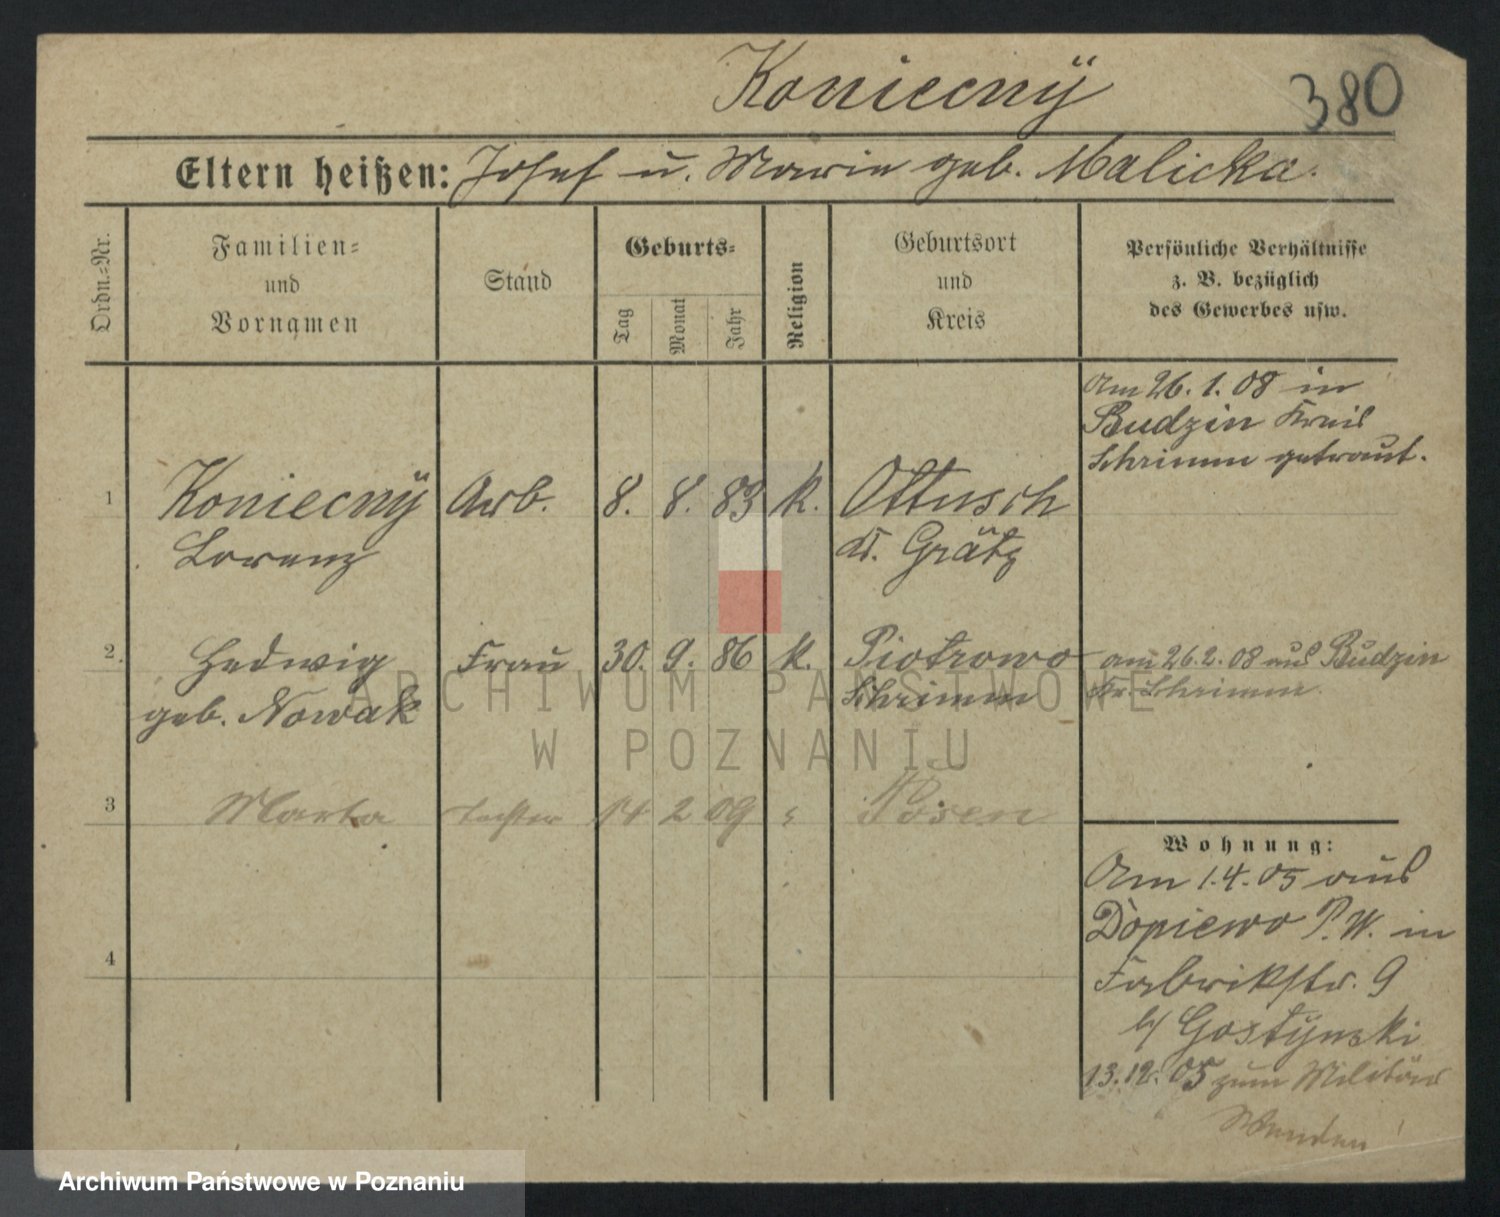 Koniecnÿ
380
Eltern heißen: Josef u. Marie geb. Malicka.
Ordn.-Nr.
Familien-
und
Vornamen
Stand
Geburts-
Tag
Monat
Jahr
Religion
Geburtsort
und
Kreis
Persönliche Verhältnisse
z. B. bezüglich
des Gewerbes usw.
Am 26. 1. 08 in
Budzin Kreis
Schrimm getraut.
1 Koniecnÿ Arb. 8. 8. 83 k. Ottusch
Lorenz Kr. Grätz
2. Hedwig Frau 30. 9. 86 k. Piotrowo
geb. Nowak Schrimm
am 26.2.08 aus Budzin
Kr. Schrimm.
3 Marta Tochter 14 2 09 Posen
4
Wohnung:
Am 1.4.05 aus
Dopiewo P.W. in
Fabrikstr. 9
b/ Gostÿnski
13.12.05 zum Militär
Wenden!
ARCHIWUM PAŃSTWOWE
W POZNANIU
Archiwum Państwowe w Poznaniu